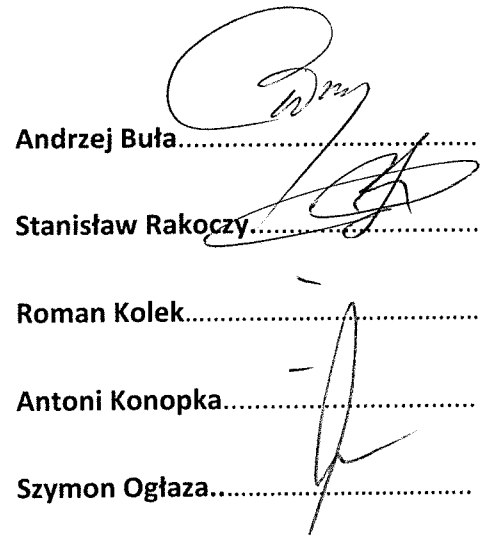 Andrzej Buła..........................................
Stanisław Rakoczy................................
Roman Kolek.........................................
Antoni Konopka....................................
Szymon Ogłaza.....................................